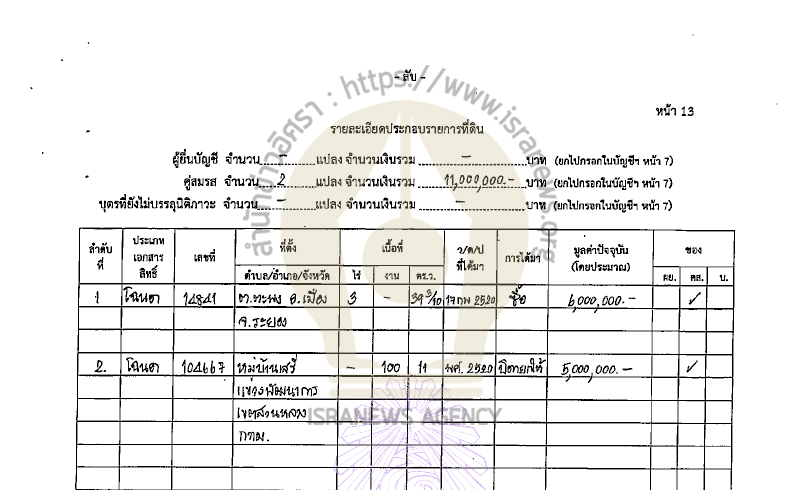 - ลับ -
หน้า 13
สำนักข่าวอิศรา : https://www.isranews.org
รายละเอียดประกอบรายการที่ดิน
ผู้ยื่นบัญชี จำนวน - แปลง จำนวนเงินรวม - บาท (ยกไปกรอกในบัญชีฯ หน้า 7)
คู่สมรส จำนวน 2 แปลง จำนวนเงินรวม 11,000,000.- บาท (ยกไปกรอกในบัญชีฯ หน้า 7)
บุตรที่ยังไม่บรรลุนิติภาวะ จำนวน - แปลง จำนวนเงินรวม - บาท (ยกไปกรอกในบัญชีฯ หน้า 7)
ลำดับที่ ประเภทเอกสารสิทธิ์ เลขที่ ที่ตั้ง เนื้อที่ ว/ด/ป ที่ได้มา การได้มา มูลค่าปัจจุบัน (โดยประมาณ) ของ
ตำบล/อำเภอ/จังหวัด ไร่ งาน ตร.ว. ผย. คส. บ.
1 โฉนด 14841 ต.ตะพง อ.เมือง 3 - 39 3/10 17 กพ 2520 ซื้อ 6,000,000.- ✓
จ.ระยอง
2. โฉนด 104667 หมู่บ้านเสรี - 100 11 พศ. 2520 บิดายกให้ 5,000,000.- ✓
แขวงพัฒนาการ
เขตสวนหลวง
กทม.
ISRANEWS AGENCY